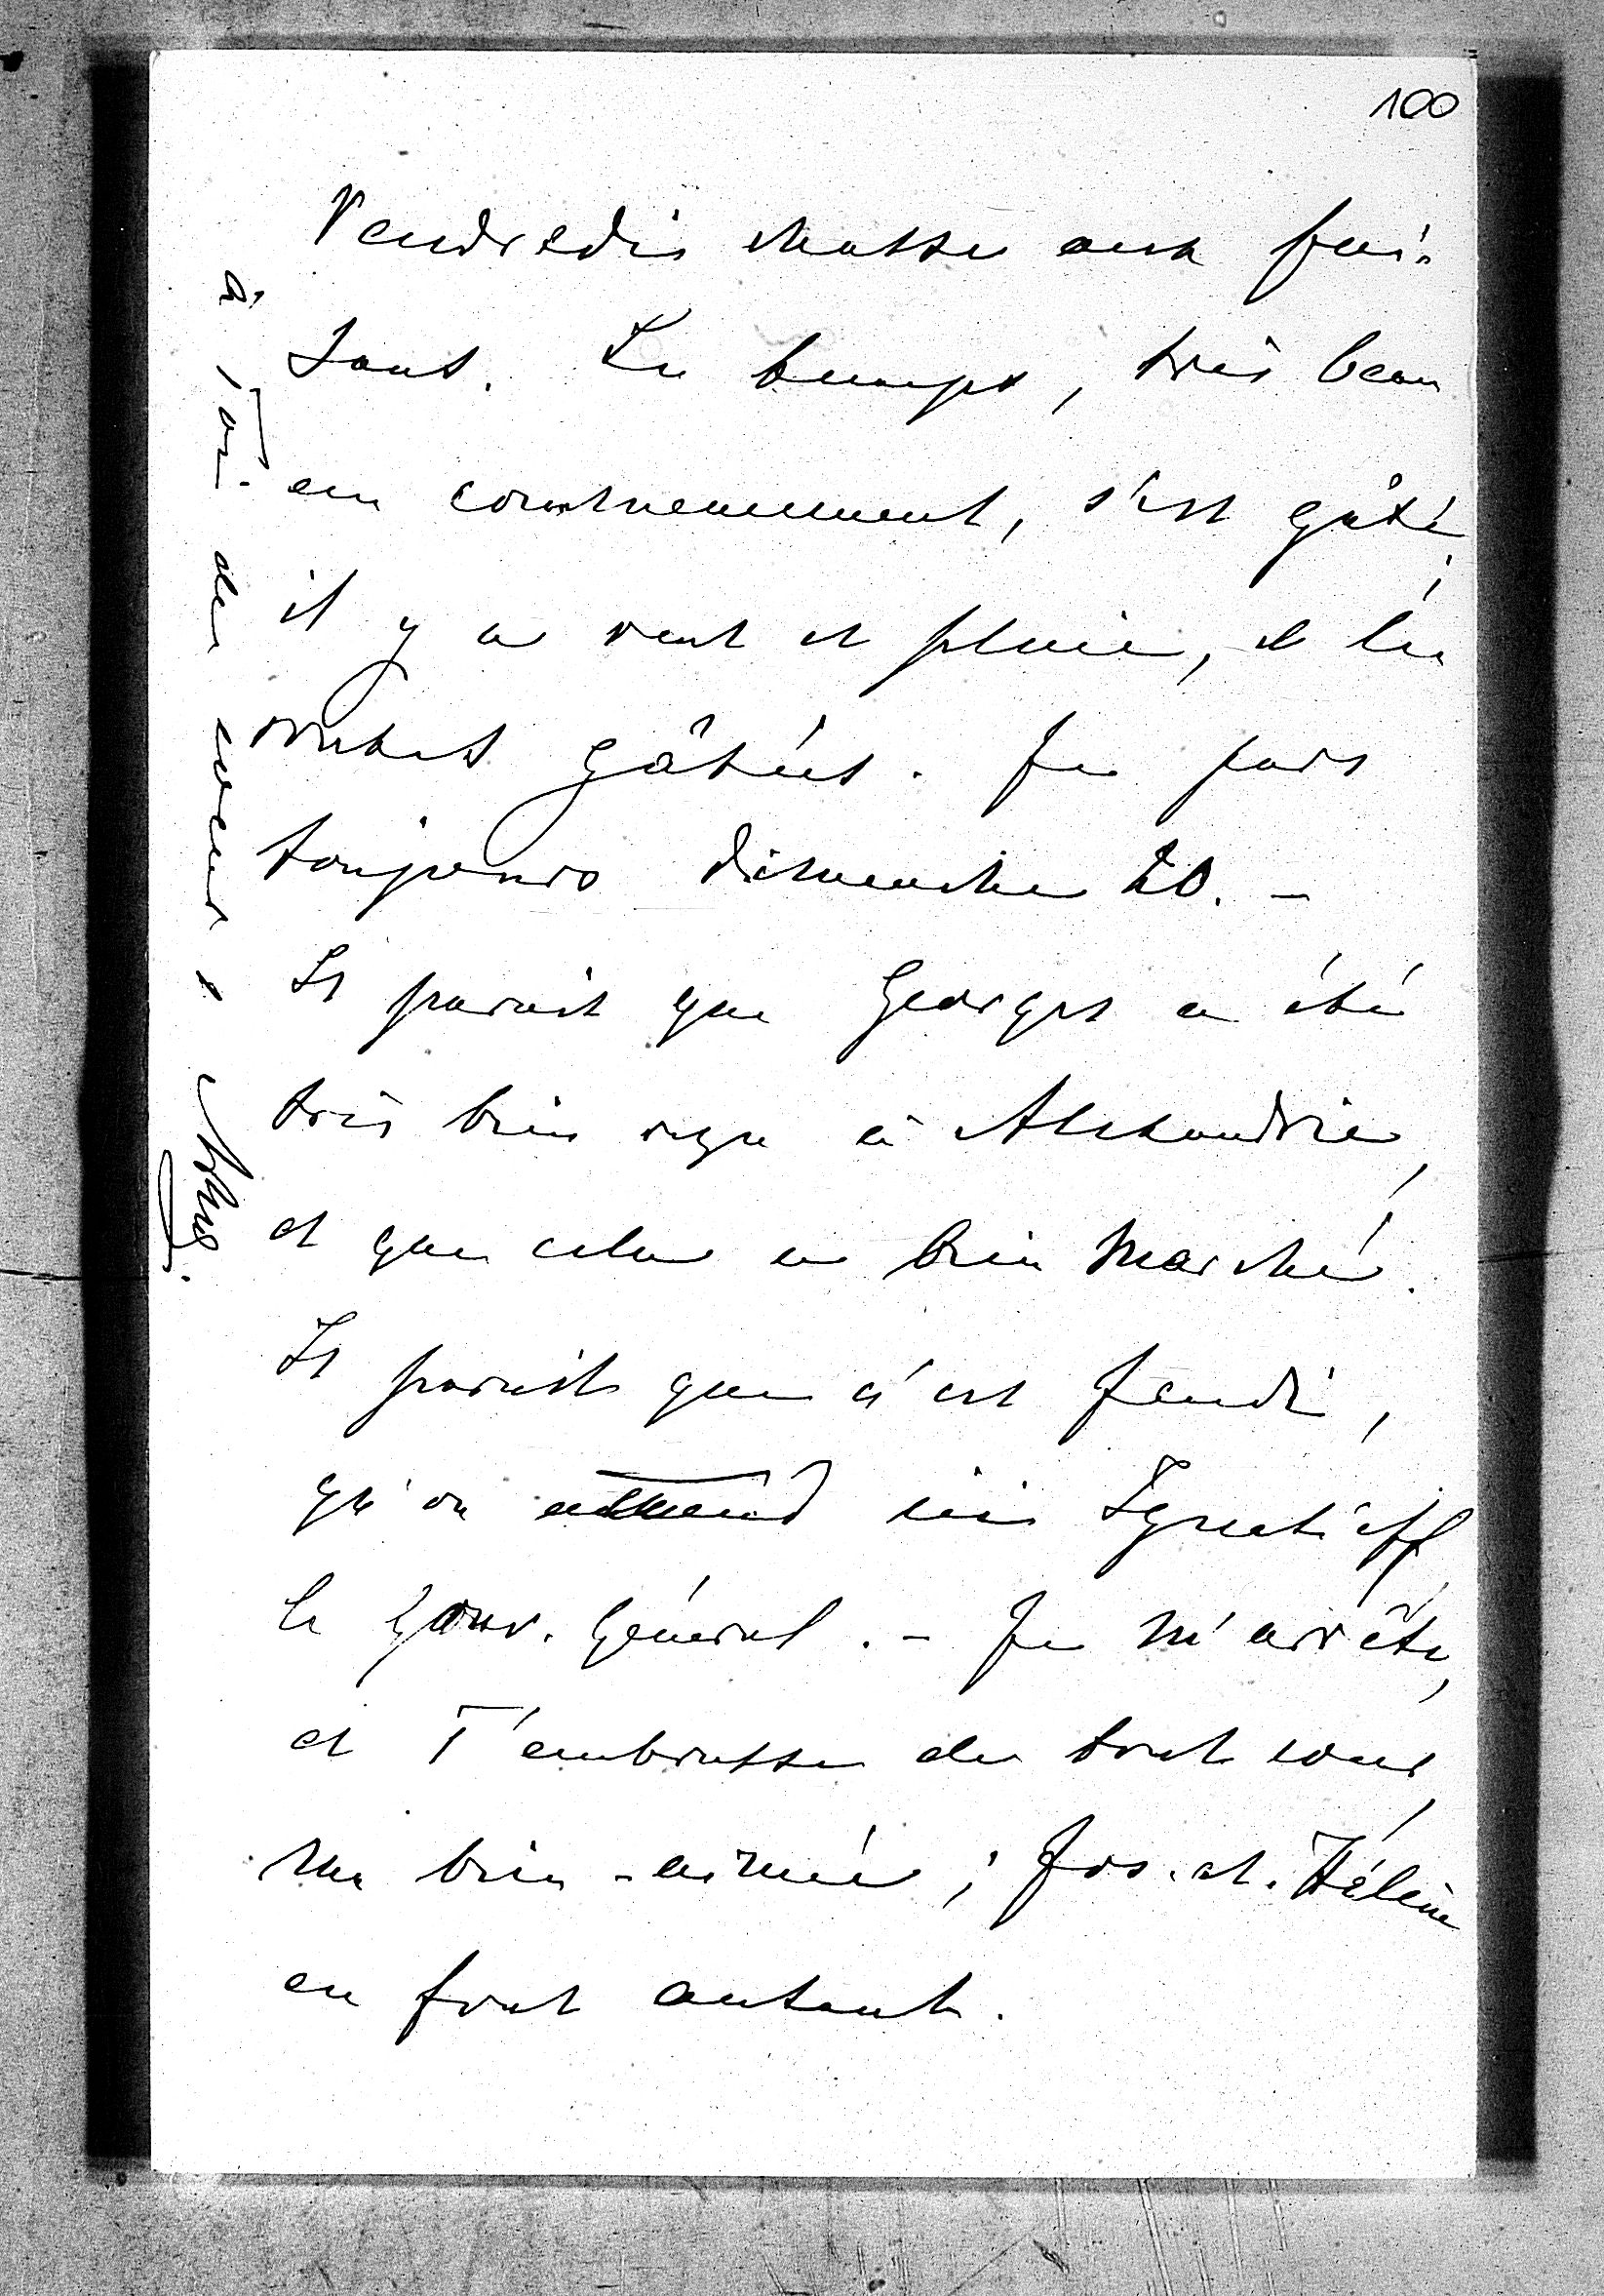 100
Vendredi chasse aux fai-
sans. Le temps, très beau
au commencement, s'est gâté,
il y a vent et pluie, et les
routes gâtées. Je pars
toujours dimanche 20. –
Il paraît que Georges a été
très bien reçu à Alexandrie,
et que cela a bien marché.
Il paraît que c'est Jeudi,
qu'on attend ici Ignatieff
le Gouv. Général. – Je m'arrête,
et T'embrasse de tout cœur,
ma bien-aimée; Jos. et Hélène
en font autant.
à Toi de cœur